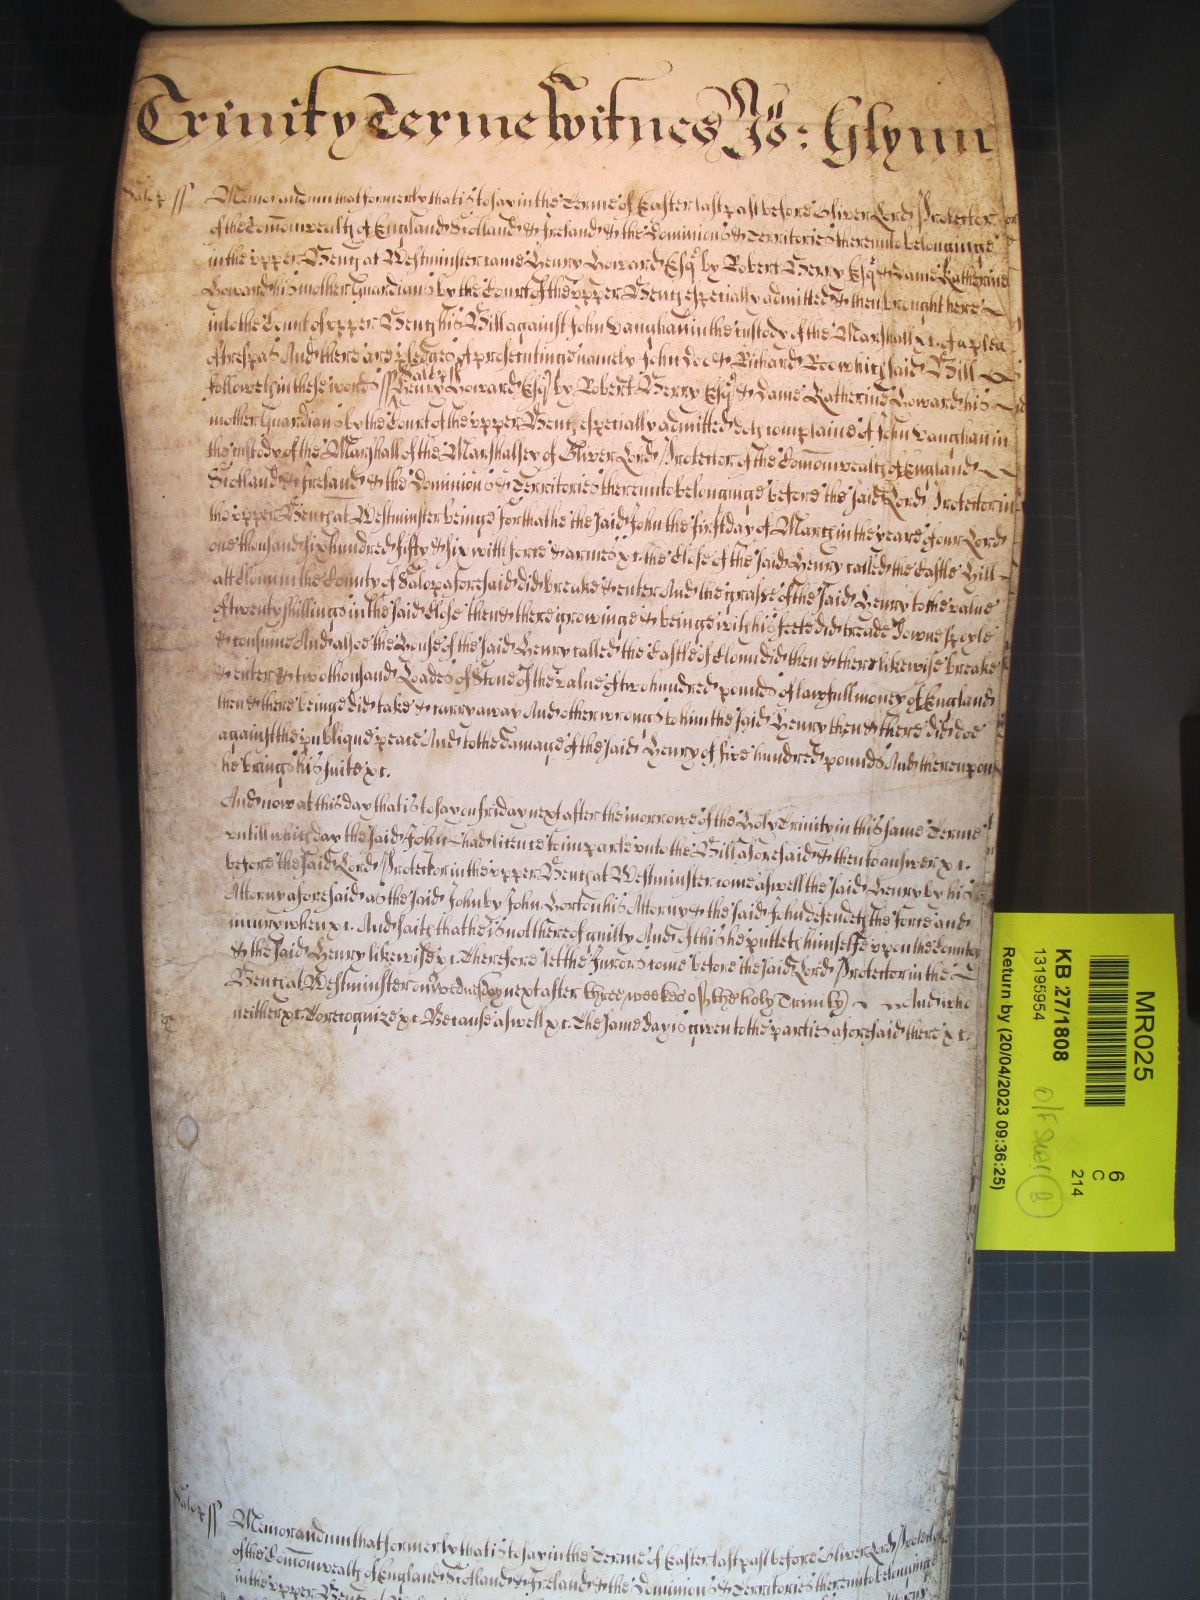 Trinity Terme Witnes Jo: Glynn
Salop ss Memorandum that formerly that is to say in the Terme of Easter last past before Oliver Lord Protector
of the Com̄onwealth of England Scotland & Ireland & the Dominions & Territories thereunto belonginge
in the vpper Bench at Westminster came Henry Howard Esqr by Robert Berry Esqr & Dame Katherine
Howard his mother Guardians by the Court of the vpper Bench especially admitted & then brought here
into the Court of vpper Bench his Bill against John Vaughan in the custody of the Marshall &c. of a plea
of trespas And there are pledges of prosecutinge namely John Doe & Richard Roe which said Bill
followeth in these words ss Salop ss Henry Howard Esqr by Robert Berry Esqr & Dame Katherine Howard his
mother Guardians by the Court of the vpper Bench especially admitted doth complaine of John Vaughan in
the custody of the Marshall of the Marshalsey of Oliver Lord Protector of the Com̄onwealth of England
Scotland & Ireland & the Dominions & Territories thereunto belonginge before the said Lord Protector in
the vpper Bench at Westminster beinge for that he the said John the first day of March in the yeare of our Lord
one thousand six hundred fifty & six with force & armes &c. the Close of the said Henry called the Castle Hill
att Clunn in the County of Salop aforesaid did breake & enter And the grasse of the said Henry to the value
of twenty shillings in the said Close then & there growinge & beinge with his feete did treade downe spoyle
& consume And alsoe the House of the said Henry called the Castle of Clunn did then & there likewise breake
& enter & two thousand Loades of Stone of the value of two hundred pounds of lawfull money of England
then & there beinge did take & carry away And other wrongs to him the said Henry then & there did doe
against the publique peace And to the damage of the said Henry of five hundred pounds And thereupon
he brings his suite &c.
And now at this day that is to say on friday next after the morrowe of the Holy Trinity in this same Terme
vntill which day the said John had licence to imparle vnto the Bill aforesaid & then to answer &c.
before the said Lord Protector in the vpper Bench at Westminster come aswell the said Henry by his
Attorny aforesaid as the said John by John Gorton his Attorny & the said John defendeth the force and
iniury when &c. And saith that he is not thereof guilty And of this he putteth himselfe vpon the Country
& the said Henry likewise &c. Therefore let the Jurors come before the said Lord Protector in the
Bench at Westminster on Wednesday next after three weekes of the holy Trinity And who
neither &c. To recognize &c. Because aswell &c. The same day is given to the parties aforesaid there &c.
Salop ss Memorandum that formerly that is to say in the Terme of Easter last past before Oliver Lord Protector
of the Com̄onwealth of England Scotland & Ireland & the Dominions & Territories thereunto belonginge
in the vpper Bench at
MR025
KB 27/1808
13195954
Return by (20/04/2023 09:36:25)
6
C
214
O/F